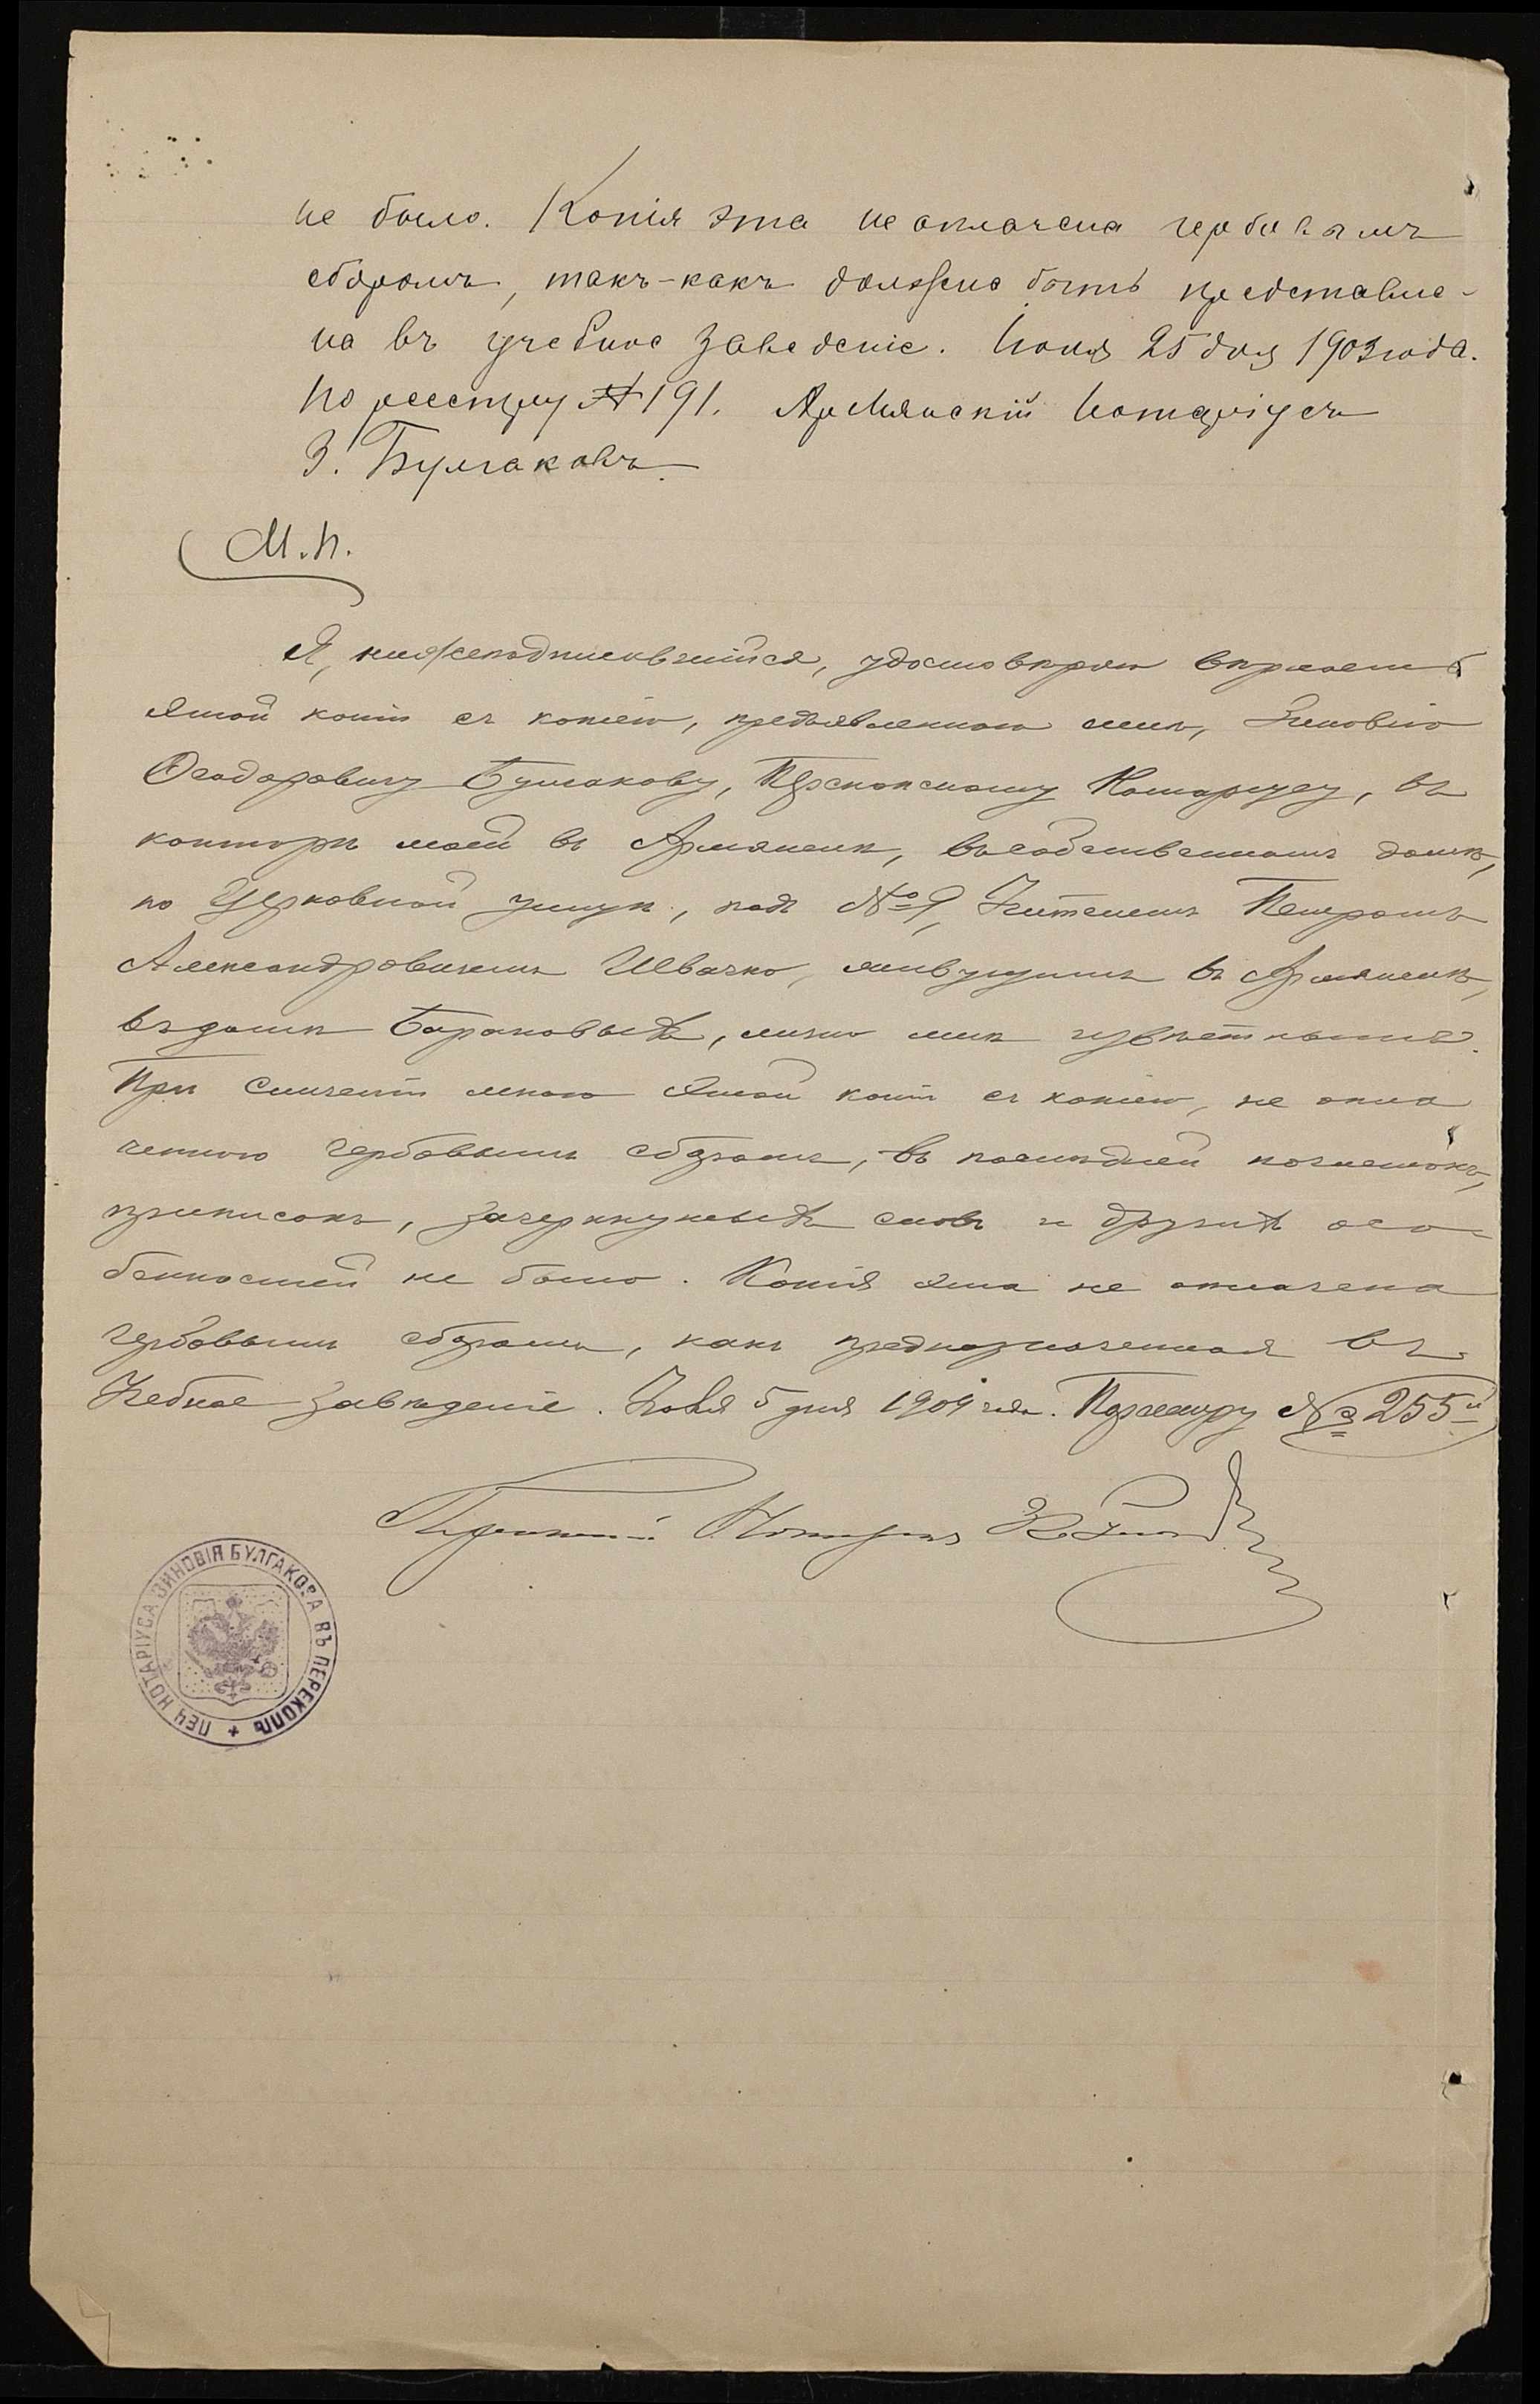 не было. Копія эта не оплачена гербовымъ
сборомъ, такъ-какъ должно быть представле-
на въ учебное заведеніе. Іюня 25 дня 1903 года.
По реестру № 191. Армянскій Нотаріусъ
З. Булгаковъ.
М.П.
Я, нижеподписавшійся, удостовѣряю вѣрность
этой копіи съ копіею, предъявленною мнѣ, Зиновію
Ѳеодоровичу Булгакову, Перекопскому Нотаріусу, въ
конторѣ моей въ Армянскѣ, въ собственномъ домѣ,
по Церковной улицѣ, подъ № 9, Учителемъ Петромъ
Александровичемъ Ивачко, живущимъ въ Армянскѣ,
въ домѣ Барановыхъ, лично мнѣ извѣстнымъ.
При сличеніи мною этой копіи съ копіею, не опла
ченною гербовымъ сборомъ, въ послѣдней подчистокъ,
приписокъ, зачеркнутыхъ словъ и другихъ осо-
бенностей не было. Копія эта не оплачена
гербовымъ сборомъ, какъ предназначенная въ
Учебное заведеніе. Іюля 5 дня 1904 года. По реестру № 255й
Перекопскій Нотаріусъ
ПЕЧ НОТАРІУСА ЗИНОВІЯ БУЛГАКОВА ВЪ ПЕРЕКОПѢ